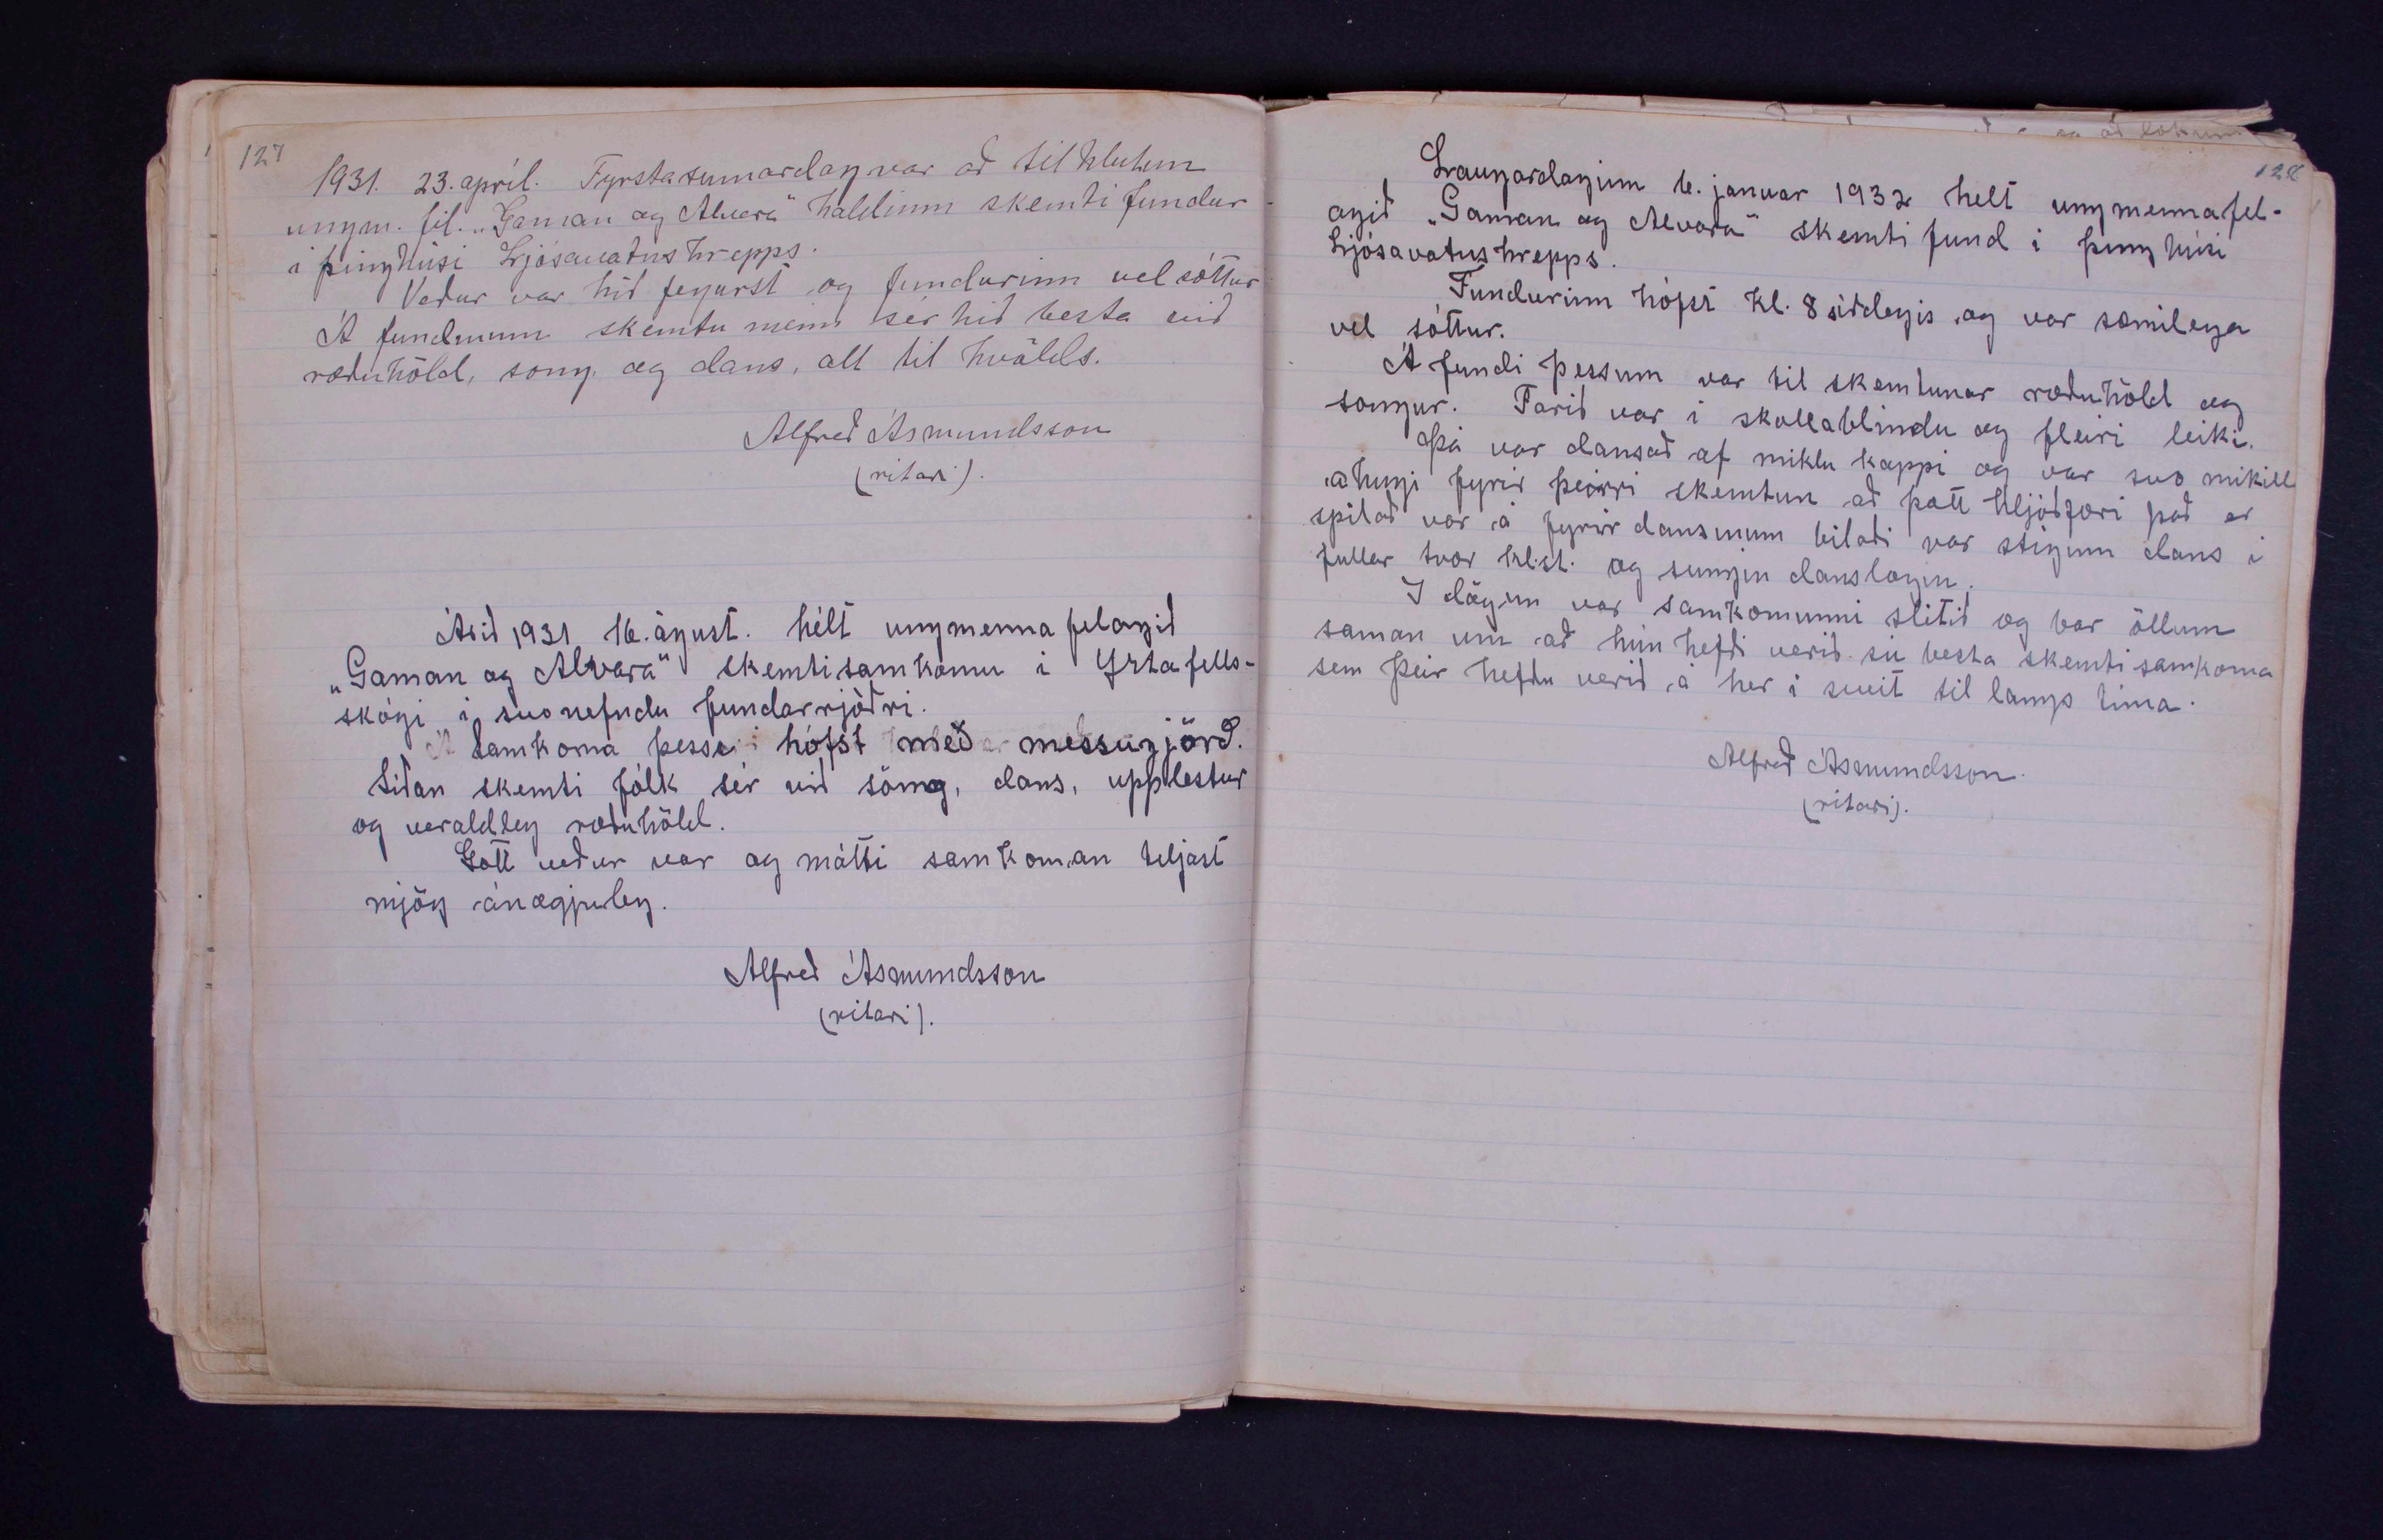 127
1931. 23. apríl. Fyrstasumardag var að tilhlutun
ungm. fél. „Gaman og Alvara" haldinn skemtifundur
í þinghúsi Ljósavatnshrepps.
Veður var hið fegurst og fundurinn vel sóttur
Á fundinum skemtu menn sér hið besta við
ræðuhöld, song og dans, alt til kvölds.
Alfreð Ásmundsson
(ritari).
Árið 1931 16. ágúst. hélt ungmenna felagið
„Gaman og Alvara" skemtisamkomu í Yztafells-
skógi í svonefndu fundarrjóðri.
Samkoma þessi hófst með messugjörð.
Síðan skemti fólk sér við söng, dans, upplestur
og veraldleg ræðuhöld.
Gott veður var og mátti samkoman teljast
mjög ánægjuleg.
Alfreð Ásmundsson
(ritari).
128
Laugardaginn 16. januar 1932 helt ungmennafél-
agið „Gaman og Alvara" skemtifund í þinghúsi
Ljósavatnshrepps.
Fundurinn hófst kl. 8 síðdegis og var sæmilega
vel sóttur.
Á fundi þessum var til skemtunar ræðuhöld og
songur. Farið var í skollablindu og fleiri leiki.
Þá var dansað af miklu kappi og var svo mikill
áhugi fyrir þeirri skemtun að þott hljóðfæri það er
spilað var á fyrir dansinum bilaði var stiginn dans í
fullar tvær kl.st. og sungin danslögin.
I dögun var samkomunni slitið og bar öllum
saman um að hún hefði verið sú besta skemtisamkoma
sem þeir hefðu verið á her í sveit til langs tíma.
Alfreð Ásmundsson.
(ritari).